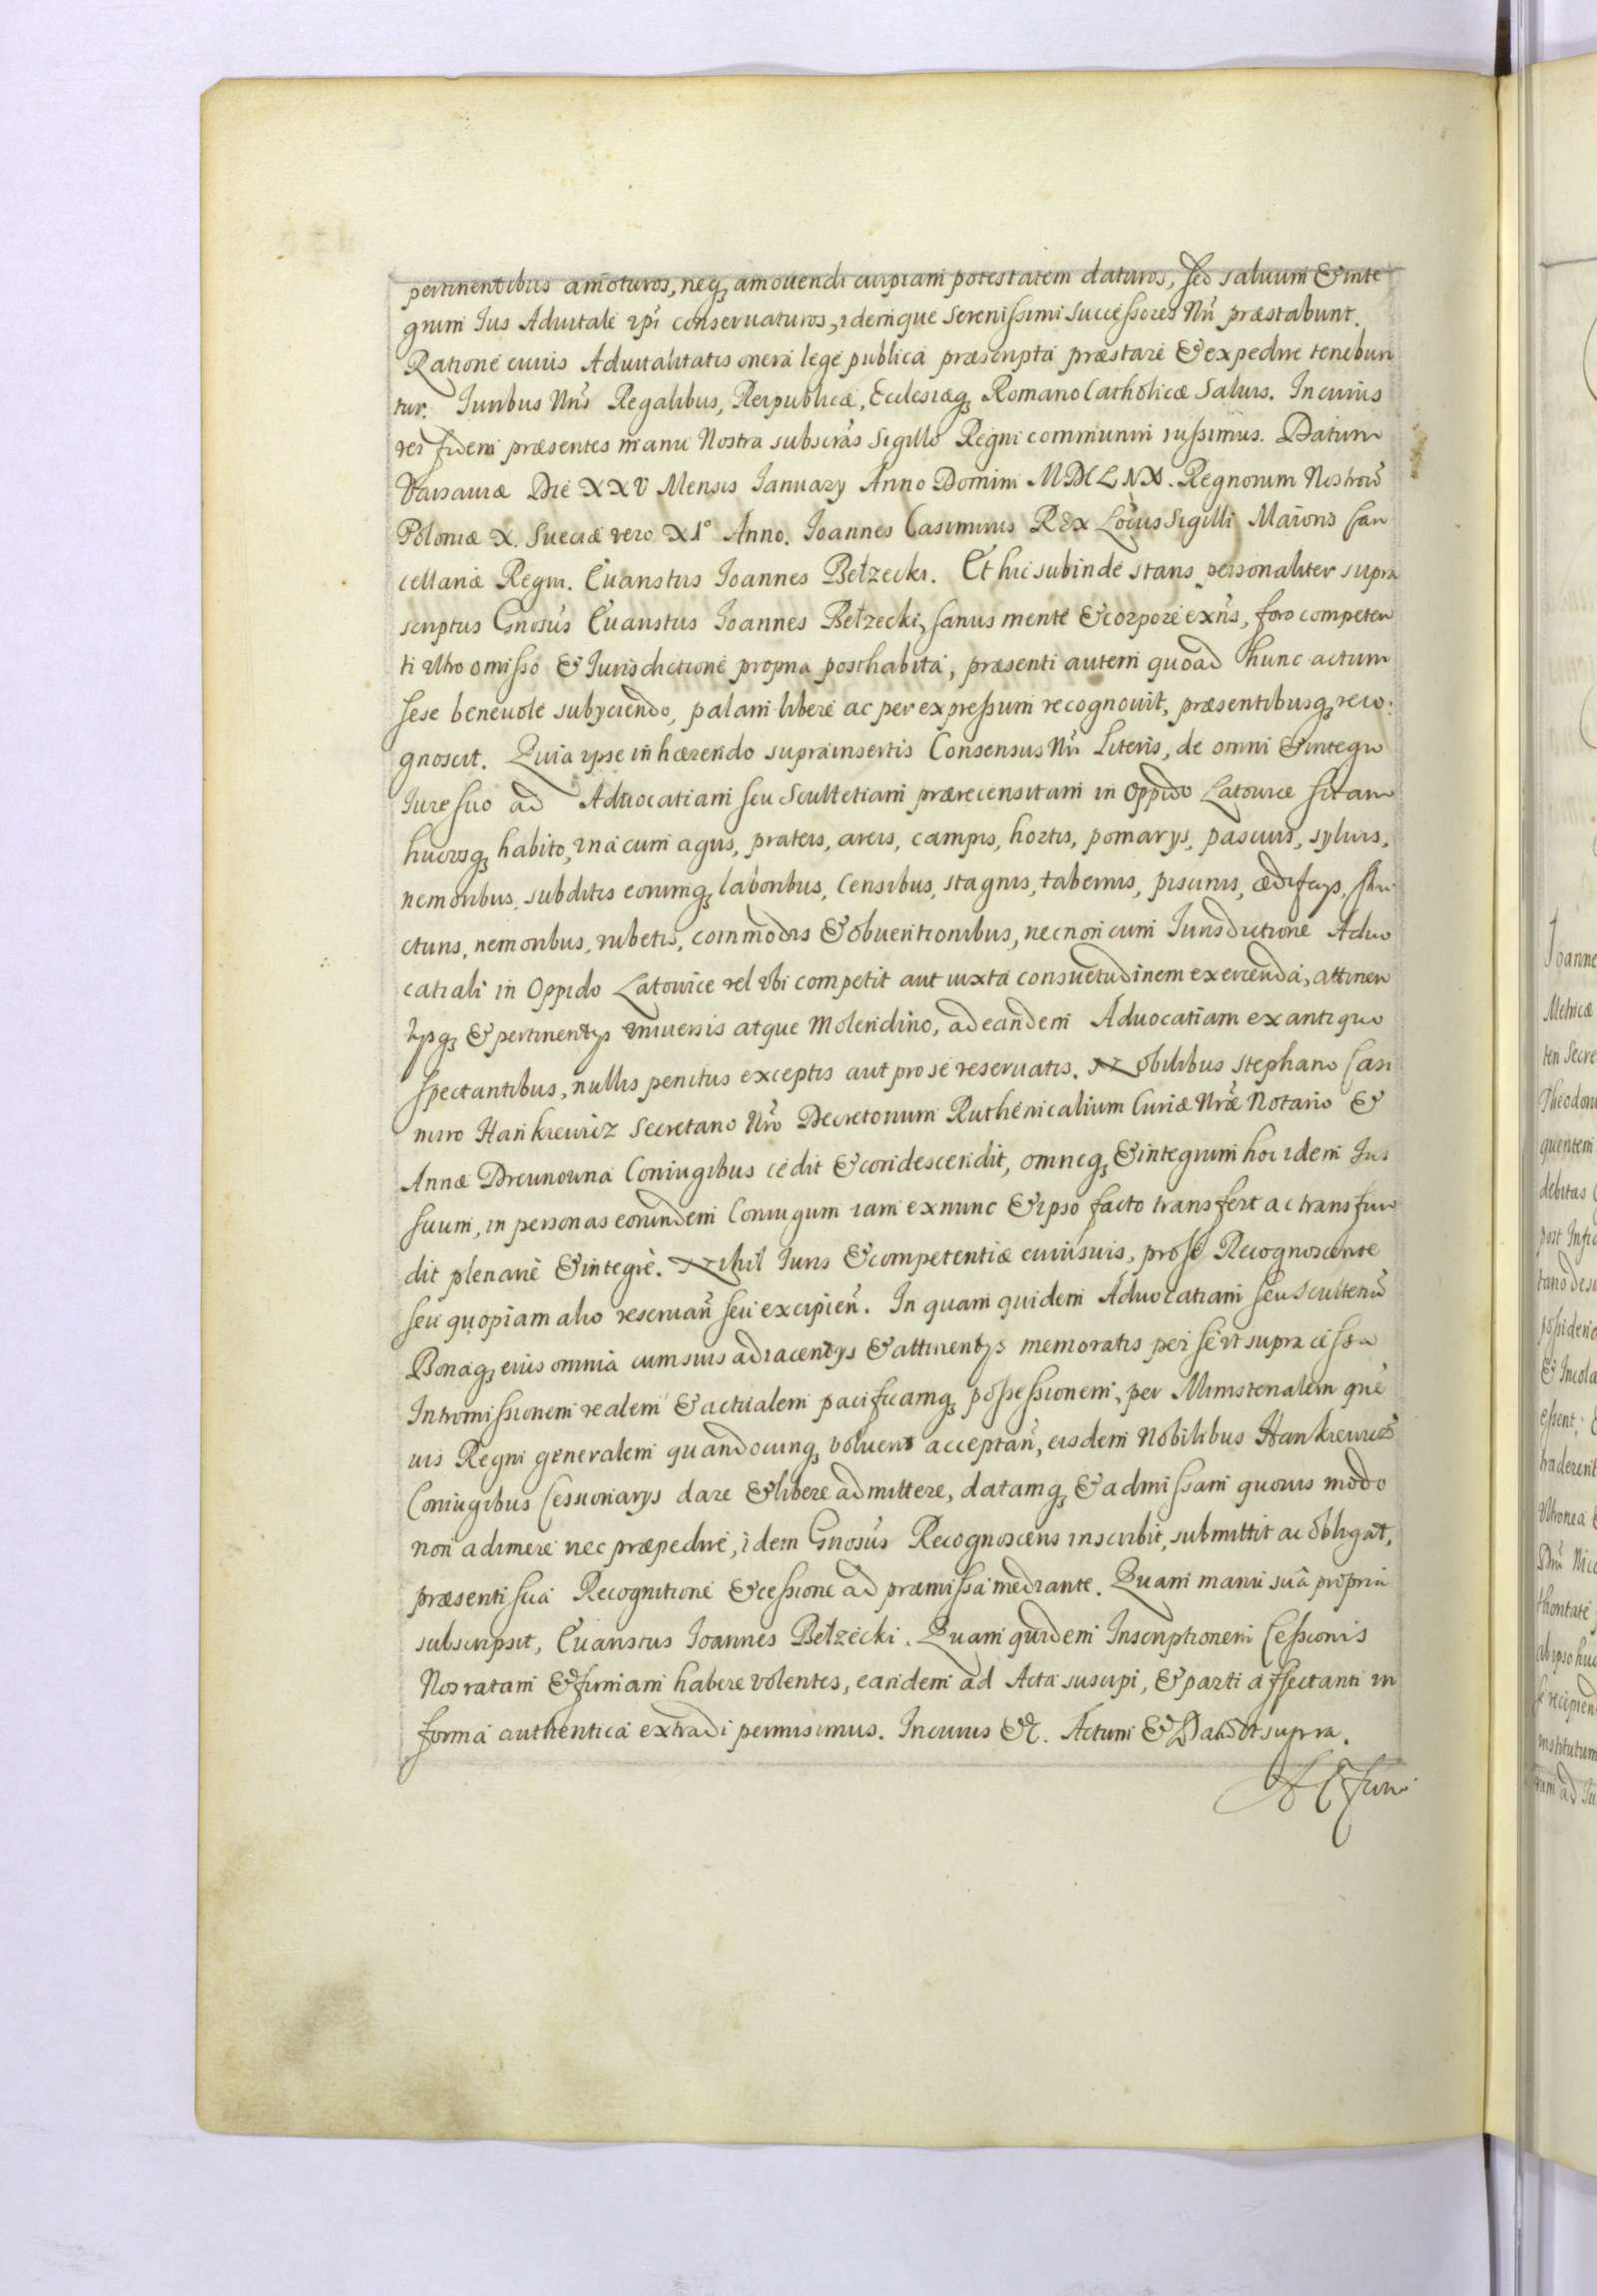 pertinentibus amoturos, neq₃ amovendi cuipiam potestatem daturos, sed salvum & inte
grum Ius Advitale ipi conservaturos, idemque Serenissimi Successores Nri præstabunt.
Ratione cuius Advitalitatis onera lege publica præscripta præstare & expedire tenebun
tur. Iuribus Nris Regalibus, Reipublicæ, Ecclesiæq₃ Romano Catholicæ salvis. In cuius
rei fidem præsentes manu Nostra subscras Sigillo Regni communiri iussimus. Datum
Varsaviæ Die XXV Mensis Ianuary Anno Domini Regnorum Nostroru
Poloniæ X. Sueciæ vero XI° Anno. Ioannes Casimirus REx Locus Sigilli Maioris Can
cellariæ Regni. Evaristus Ioannes Bełzecki. Et hic subinde stans personaliter supra
scriptus Gnosus Evaristus Ioannes Bełzecki, sanus mente & corpore exns, foro competen
ti ultro omisso & Iurisdictione propria posthabita, præsenti autem quoad hunc actum
sese benevole subyciendo, palam libere ac per expressum recognovit, præsentibusq₃ reco:
gnoscit. Quia ipse inhærendo suprainsertis Consensus Nri Literis, de omni & integro
Iure suo ad Advocatiam seu Scultetiam prærecensitam in Oppido Latowice sitam
hucusq₃ habito, una cum agris, pratis, areis, campis, hortis, pomarys, pascuis, sylvis,
nemoribus, subditis eorumq₃ laboribus, censibus, stagnis, tabernis, piscinis, ædificys, stru
cturis, nemoribus, rubetis, commodis & obventionibus, necnon cum Iurisdictione Advo
catiali in Oppido Latowice vel ubi competit aut iuxta consuetudinem exercenda, attinen
tysq₃ & pertinentys universis atque Molendino, ad eandem Advocatiam ex antiquo
spectantibus, nullis penitus exceptis aut pro se reservatis. Nobilibus Stephano Casi
miro Hankiewicz Secretario Nro Decretorum Ruthenicalium Curiæ Nræ Notario &
Annæ Drewnowna Coniugibus cedit & condescendit, omneq₃ & integrum hoc idem Ius
suum, in personas eorundem Coniugum iam exnunc & ipso facto transfert ac transfun
dit plenarie & integre. Nihil Iuris & competentiæ cuiusvis, pro se Recognoscente
seu quopiam alio reservan seu excipien. In quam quidem Advocatiam seu Scultetiu
Bonaq₃ eius omnia cum suis adiacentys & attinentys memoratis per se ut supra cessa
Intromissionem realem & actualem pacificamq₃ possessionem, per Ministerialem que
vis Regni generalem quandocunq₃ voluerit acceptan, eisdem Nobilibus Hankiewicz
Coniugibus Cessionarys dare & libere admittere, datamq₃ & admissam quovis modo
non adimere nec præpedire, idem Gnosus Recognoscens inscribit, submittit ac obligat,
præsenti sua Recognitione & cessione ad præmissa mediante. Quam manu sua propria
subscripsit, Evaristus Ioannes Bełzecki. Quam quidem Inscriptionem Cessionis
Nos ratam & firmam habere volentes, eandem ad Acta suscipi, & parti affectanti in
forma authentica extradi permisimus. In cuius &c. Actum & Dat ut supra.